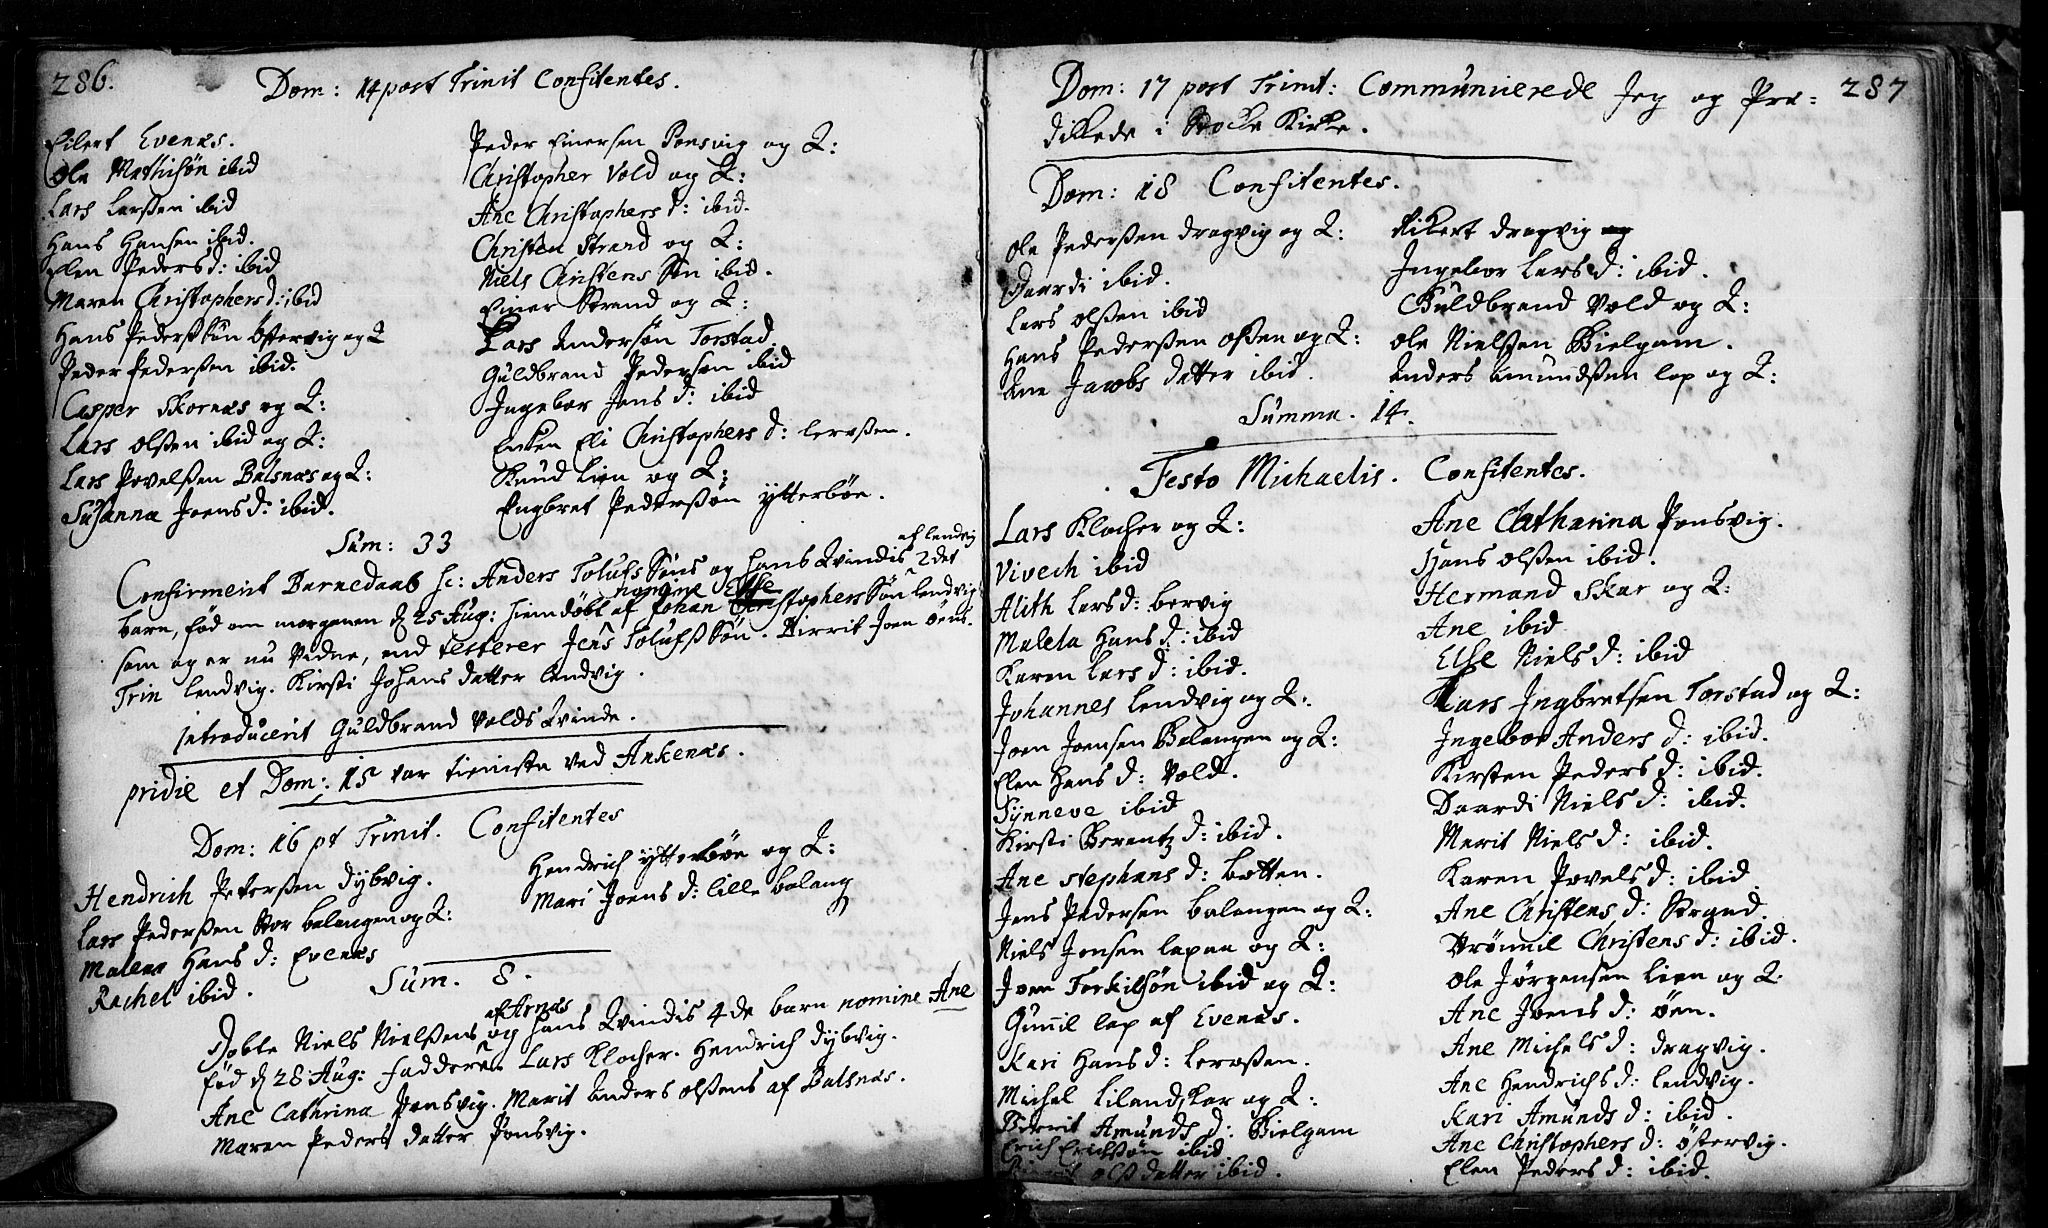 286.
Dom: 14 post Trinit Confitentes.
Eilert Evenæs.
Ole Mathisøn ibid
Lars Larssen ibid
Hans Hansen ibid.
Elen Peders d: ibid
Maren Christophers d: ibid
Hans Pederss Søn Østervig og Q
Peder Pederssen ibid.
Casper Skornæs og Q:
Lars Olssen ibid og Q:
Lars Povelssen Balsnæs og Q:
Susanna Joens d: ibid.
Peder Einersen Ponsvig og Q:
Christopher Vold og Q:
Ane Christophers d: ibid.
Christen Strand og Q:
Niels Christens Søn ibid.
Einer Strand og Q:
Lars Andersøn Torstad
Guldbrand Pedersøn ibid
Ingebor Jens d: ibid
Enken Eli Christophers d: Lerassen.
Knud Lien og Q:
Engbret Pederssøn Ytterbøe.
Sum: 33
Confirmerit Barnedaab sc: Anders Tolufs Søns og Hans Qvindis af Lendvig 2det
barn, fød om morgenen d 25 Aug: hiemdøbt af nomine Else Johan Christophers Søn Lendvig
som og er nu Vidne, end testerer Jens Tolufss Søn. Birrit Joen Øens.
Trin Lendvig. Kirsti Johans datter Lendvig.
introducerit Guldbrand Volds Qvinde.
pridie et Dom: 15 var tieniste ved Ankenæs.
Dom: 16 pt Trinit. Confitentes
Hendrich Peterssen Dybvig.
Lars Pederssen Stor balangen og Q:
Malena Hans d: Evenæs
Rachel ibid.
Hendrich Ytterbøe og Q:
Mari Joens d: lille balang
Sum. 8.
Døbte Niels Nielssens af Arnæs og hans Qvindis 4de barn nomine Ane
fød d 28 Aug: Fadderen Lars Klocher. Hendrich Dybvig.
Ane Cathrina Ponsvig. Marit Anders Olssens af Balsnæs.
Maren Peders datter Ponsvig.
287
Dom: 17 post Trinit: Communicerede Jeg og Præ-
dikede i Kirke.
Dom: 18 Confitentes.
Ole Pederssen Dragvig og Q:
Daardi ibid.
Lars Olssen ibid
Hans Pederssen Ossen og Q:
Ane Jacobs datter ibid.
Rikert Dragvig og
Ingebor Lars d: ibid.
Guldbrand Vold og Q:
Ole Nielssen Bielgam.
Anders Amundssen Lap og Q:
Summa. 14.
Festo Michaelis. Confitentes.
Lars Klocher og Q:
Vivech ibid
Alith Lars d: Bervig
Maleta Hans d: ibid
Karen Lars d: ibid.
Johannes Lendvig og Q:
Joen Joensen Balangen og Q:
Elen Hans d: Vold.
Synneve ibid
Kirsti Berentz d: ibid.
Ane Stephans d: Botten.
Jens Pedersen Balangen og Q:
Niels Jonsen Lapen og Q:
Joen Torkilsøn ibid og Q:
Gunnil Lap af Evenæs.
Kari Hans d: Lerassen.
Michel Lilandskar og Q:
Berrit Amunds d: Bielgam
Erich Erichssøn ibid
Olss datter ibid.
Ane Catharina Ponsvig.
Hans Olssen ibid.
Hermand Skar og Q:
Ane ibid
Else Niels d: ibid
Lars Ingbretsen Torstad og Q:
Ingebor Anders d: ibid.
Kirsten Peders d: ibid.
Daardi Niels d: ibid.
Marit Niels d: ibid.
Karen Povels d: ibid
Ane Christens d: Strand.
Drønnil Christens d: ibid.
Ole Jørgensen Lien og Q
Ane Joens d: Øen.
Ane Michels d: Dragvig.
Ane Hendrichs d: Lendvig.
Kari Amunds d: ibid.
Ane Christophers d: Østervig.
Elen Peders d: ibid.